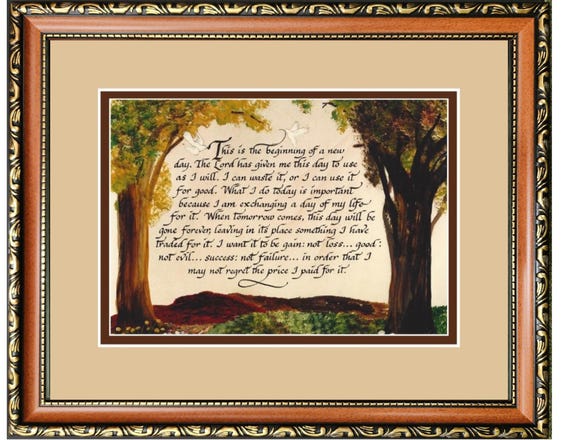 This is the beginning of a new
day. The Lord has given me this day to use
as I will. I can waste it, or I can use it
for good. What I do today is important
because I am exchanging a day of my life
for it. When tomorrow comes, this day will be
gone forever, leaving in its place something I have
traded for it. I want it to be gain: not loss... good:
not evil... success: not failure... in order that I
may not regret the price I paid for it.